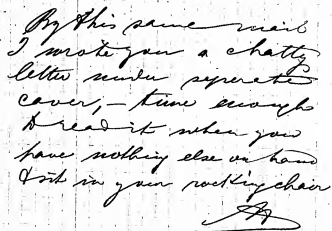 By this same mail
I wrote you a chatty
letter under seperate
cover, – time enough
to read it when you
have nothing else on hand
& sit in your rocking chair